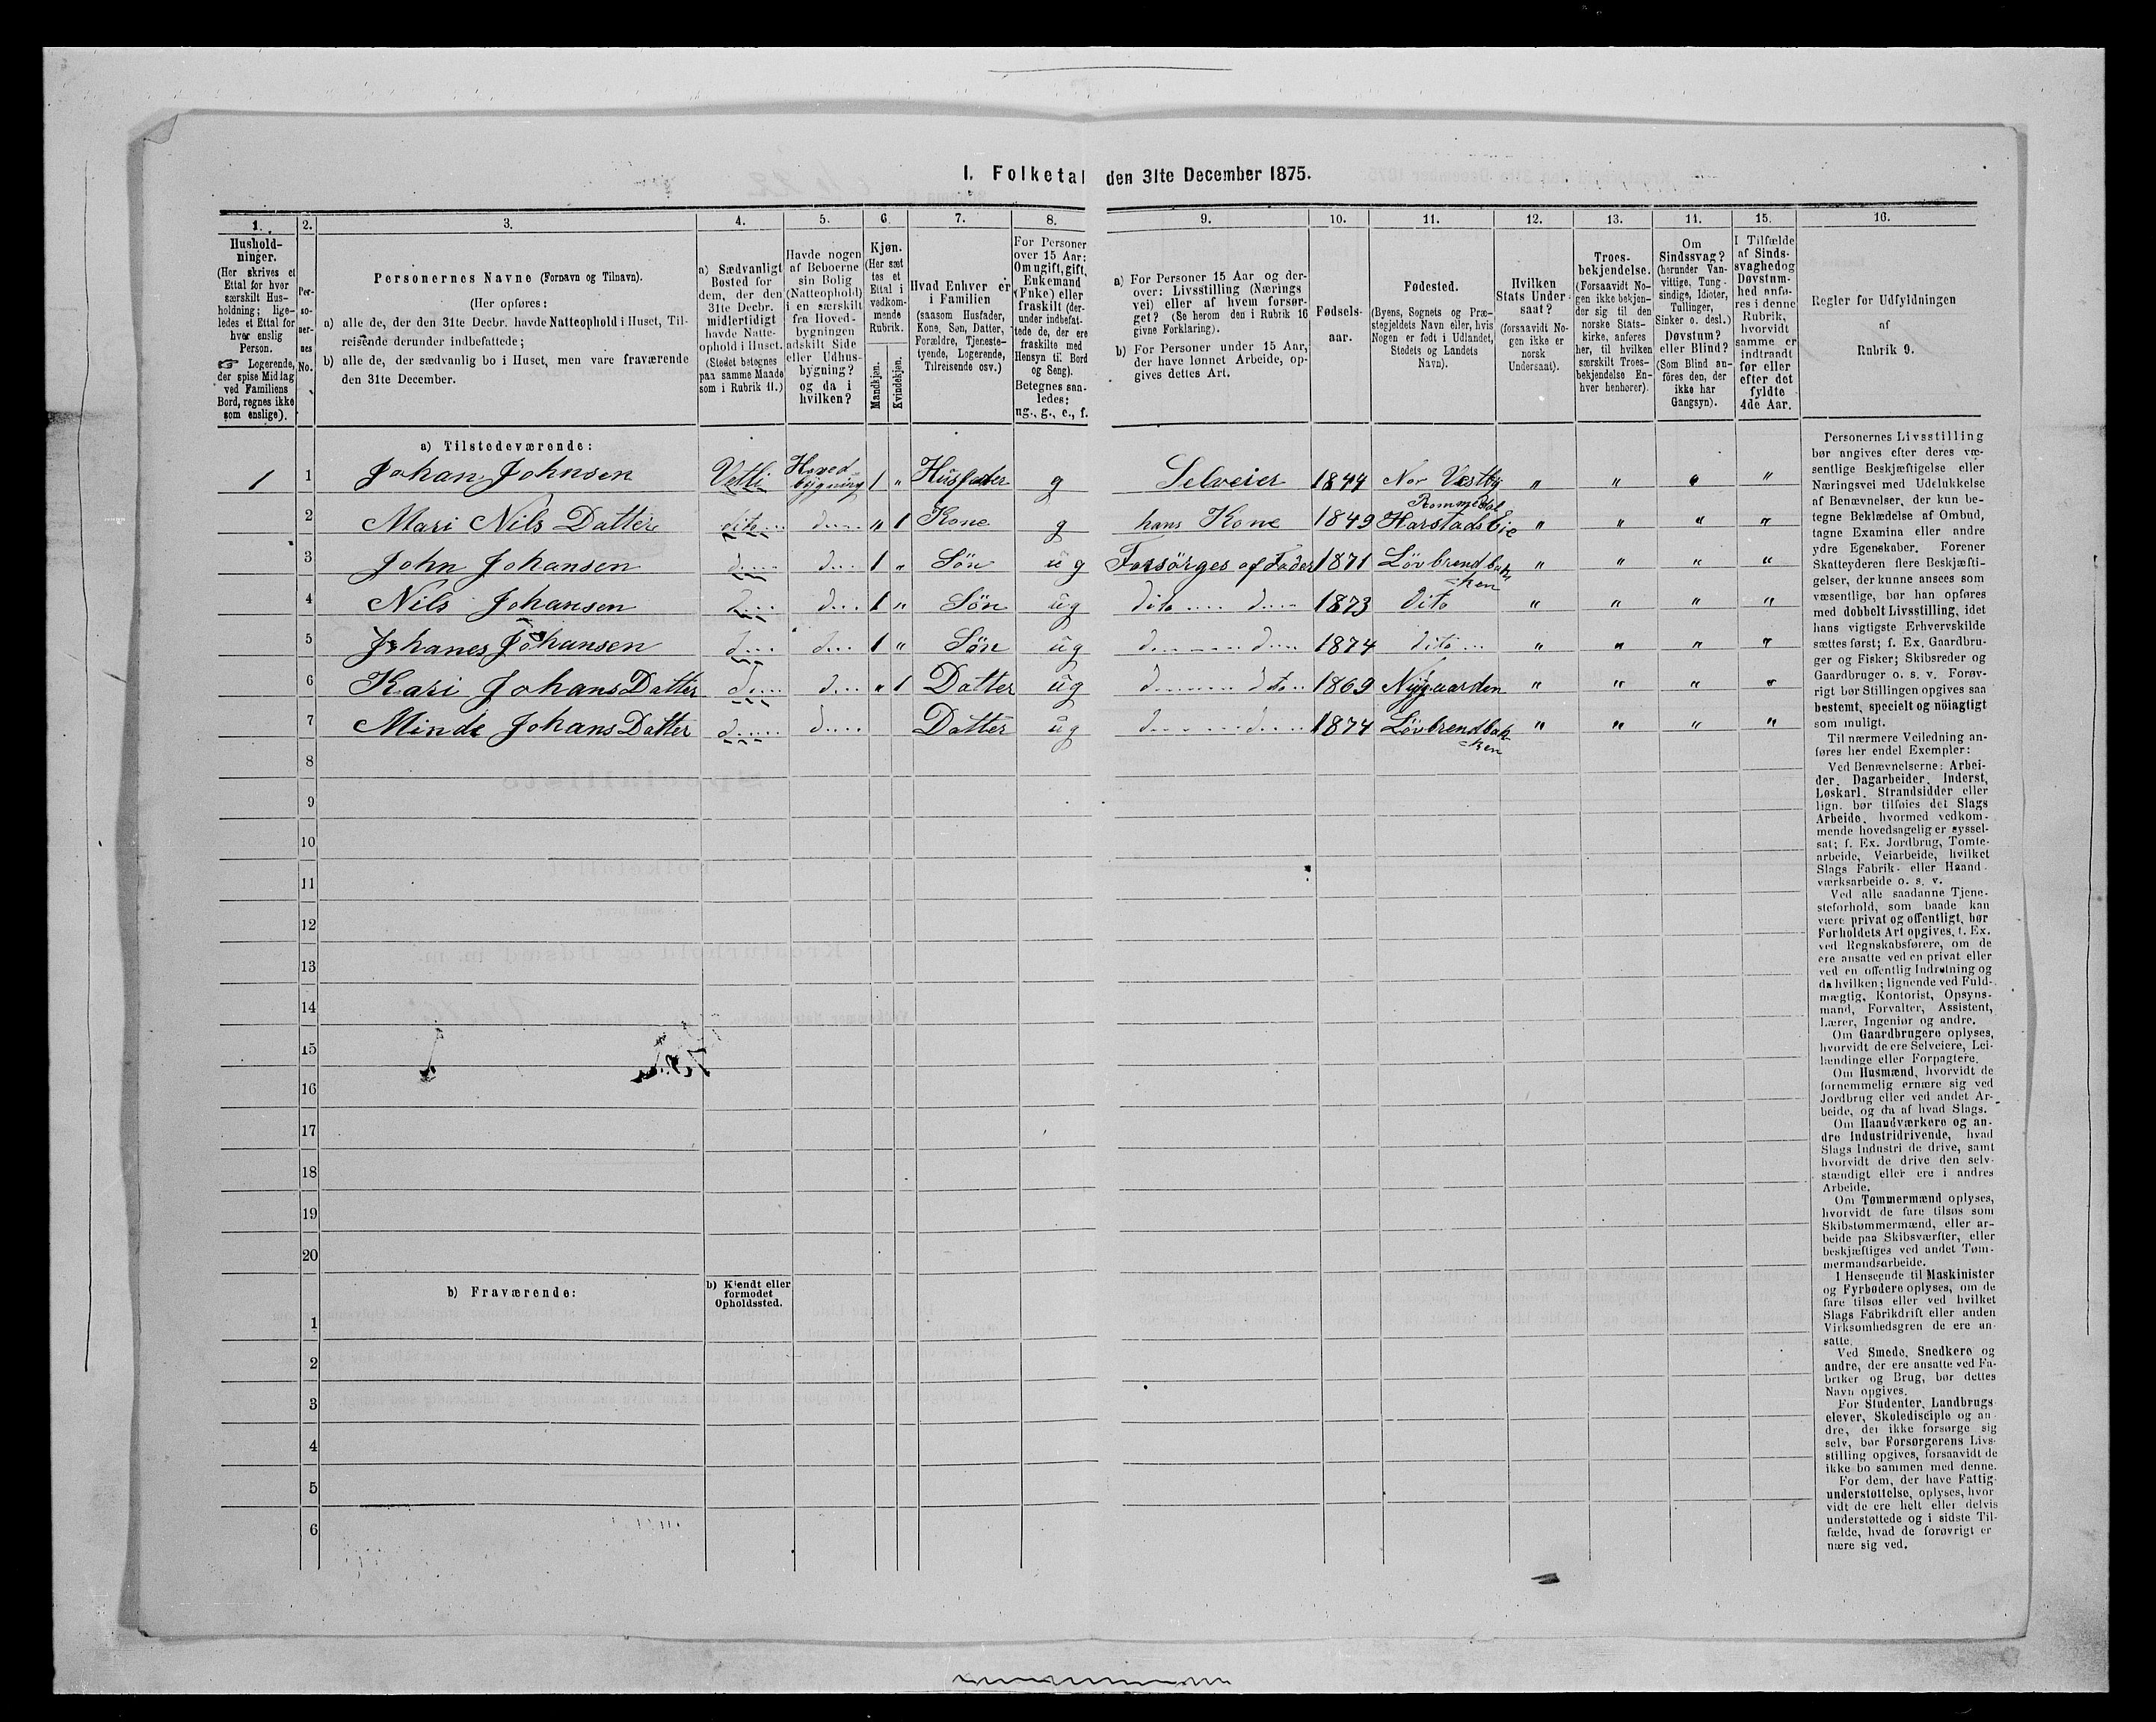 I. Folketal den 31te December 1875.
1.
Hushold-
ninger.
(Her skrives et
Ettal for hver
særskilt Hus-
holdning; lige-
ledes et Ettal for
hver enslig
Person.
☞ Logerende,
der spise Middag
ved Familiens
Bord, regnes ikke
som enslige).
2.
Per-
so-
ner-
nes
No.
3.
Personernes Navne (Fornavn og Tilnavn).
(Her opføres:
a) alle de, der den 31te Decbr. havde Natteophold i Huset, Til-
reisende derunder indbefattede;
b) alle de, der sædvanlig bo i Huset, men vare fraværende
den 31te December.
4.
a) Sædvanligt
Bosted for
dem, der den
31te Decbr.
midlertidigt
havde Natte-
ophold i Huset.
(Stedet betegnes
paa samme Maade
som i Rubrik 11.)
5.
Havde nogen
af Beboerne
sin Bolig
(Natteophold)
i en særskilt
fra Hoved-
bygningen
adskilt Side
eller Udhus-
bygning?
og da i
hvilken?
6.
Kjøn.
(Her sæt
tes et
Ettal i
vedkom-
mende
Rubrik.
Mandkjøn.
Kvindekjøn.
7.
Hvad Enhver er
i Familien
(saasom Husfader,
Kone, Søn, Datter,
Forældre, Tjeneste-
tyende, Logerende,
Tilreisende osv.)
8.
For Personer
over 15 Aar:
Om ugift, gift,
Enkemand
(Enke) eller
fraskilt (der-
under indbefat-
tede de, der ere
fraskilte med
Hensyn til Bord
og Seng).
Betegnes saa-
ledes:
ug., g., e., f.
9.
a) For Personer 15 Aar og der-
over: Livsstilling (Nærings
vei) eller af hvem forsør-
get? (Se herom den i Rubrik 16
givne Forklaring).
b) For Personer under 15 Aar,
der have lønnet Arbeide, op-
gives dettes Art.
10.
Fødsels-
aar.
11.
Fødested.
(Byens, Sognets og Præ-
stegjeldets Navn eller, hvis
Nogen er født i Udlandet,
Stedets og Landets
Navn).
12.
Hvilken
Stats Under-
saat?
(forsaavidt No-
gen ikke er
norsk
Undersaat).
13.
Troes-
bekjendelse.
(Forsaavidt No-
gen ikke bekjen-
der sig til den
norske Stats-
kirke, anføres
her, til hvilken
særskilt Troes-
bekjendelse En-
hver henhører).
14.
Om
Sindssvag?
(herunder Van-
vittige, Tung-
sindige, Idioter,
Tullinger,
Sinker o. desl.)
Døvstum?
eller Blind?
(Som Blind an-
føres den, der
ikke har
Gangsyn).
15.
I Tilfælde
af Sinds-
svaghed og
Døvstum-
hed anfø-
res i denne
Rubrik,
hvorvidt
samme er
indtraadt
før eller
efter det
fyldte
4de Aar.
16.
Regler for Udfyldningen
af
Rubrik 9.
a) Tilstedeværende:
1 1 Johan Johnsen Vetli Hoved- bygning 1 " Husfader g Selveier 1844 Nor Vestby " " " "
Rommedal
2 Mari Nils Datter dito d " 1 Kone g hans Kone 1849 Harstads Eie " " " "
3 John Johansen d d 1 " Sön ug Forsörges af Fader 1871 Lövbrendbak- ken " " " "
4 Nils Johansen d d 1 " Sön ug dito d 1873 dito " " " "
5 Johanes Johansen d d 1 " Sön ug d d 1874 dito " " " "
6 Kari Johans Datter d d " 1 Datter ug d dto 1869 Nygaarden " " " "
7 Minde Johans Datter d d Datter ug d d 1874 Lövbrendbak- ken " " " "
8
9
10
11
12
13
14
15
16
17
18
19
20
b) Fraværende:
b) Kjendt eller
formodet
Opholdssted.
1
2
3
4
5
6
Personernes Livsstilling
bør angives efter deres væ-
sentlige Beskjæftigelse eller
Næringsvei med Udelukkelse
af Benævnelser, der kun be-
tegne Beklædelse af Ombud,
tagne Examina eller andre
ydre Egenskaber. Forener
Skatteyderen flere Beskjæfti-
gelser, der kunne ansees som
væsentlige, bør han opføres
med dobbelt Livsstilling, idet
hans vigtigste Erhvervskilde
sættes først; f. Ex. Gaardbru-
ger og Fisker; Skibsreder og
Gaardbruger o. s. v. Forøv-
rigt bør Stillingen opgives saa
bestemt, specielt og nöiagtigt
som muligt.
Til nærmere Veiledning an-
føres her endel Exempler:
Ved Benævnelserne: Arbei-
der, Dagarbeider, Inderst,
Løskarl, Strandsidder eller
lign. bør tilføies det Slags
Arbeide, hvormed vedkom-
mende hovedsagelig er syssel-
sat; f. Ex. Jordbrug, Tomte-
arbeide, Veiarbeide, hvilket
Slags Fabrik- eller Haand-
værksarbeide o. s. v.
Ved alle saadanne Tjene-
steforhold, som baade kan
være privat og offentligt, bør
Forholdets Art opgives, f. Ex.
ved Regnskabsførere, om de
ere ansatte ved en privat eller
ved en offentlig Indretning og
da hvilken; lignende ved Fuld-
mægtig, Kontorist, Opsyns-
mand, Forvalter, Assistent,
Lærer, Ingeniør og andre.
Om Gaardbrugere oplyses,
hvorvidt de ere Selveiere, Lei-
lændinge eller Forpagtere.
Om Husmænd, hvorvidt de
fornemmelig ernære sig ved
Jordbrug eller ved andet Ar-
beide, og da af hvad Slags.
Om Haandværkere og an-
dre Industridrivende, hvad
Slags Industri de drive, samt
hvorvidt de drive den selv-
stændigt eller ere i andres
Arbeide.
Om Tømmermænd oplyses,
hvorvidt de fare tilsøs som
Skibstømmermænd, eller ar-
beide paa Skibsværfter, eller
beskjæftiges ved andet Tøm-
mermandsarbeide.
I Henseende til Maskinister
og Fyrbødere oplyses, om de
fare tilsøs eller ved hvilket
Slags Fabrikdrift eller anden
Virksomhedsgren de ere an-
satte.
Ved Smede, Snedkere og
andre, der ere ansatte ved Fa-
briker og Brug, bør dettes
Navn opgives.
For Studenter, Landbrugs-
elever, Skoledisciple og an-
dre, der ikke forsørge sig
selv, bør Forsørgerens Livs-
stilling opgives, forsaavidt de
ikke bo sammen med denne.
For dem, der have Fattig-
understøttelse, oplyses, hvor
vidt de ere helt eller delvis
understøttede og i sidste Til-
fælde, hvad de forøvrigt er
nære sig ved.